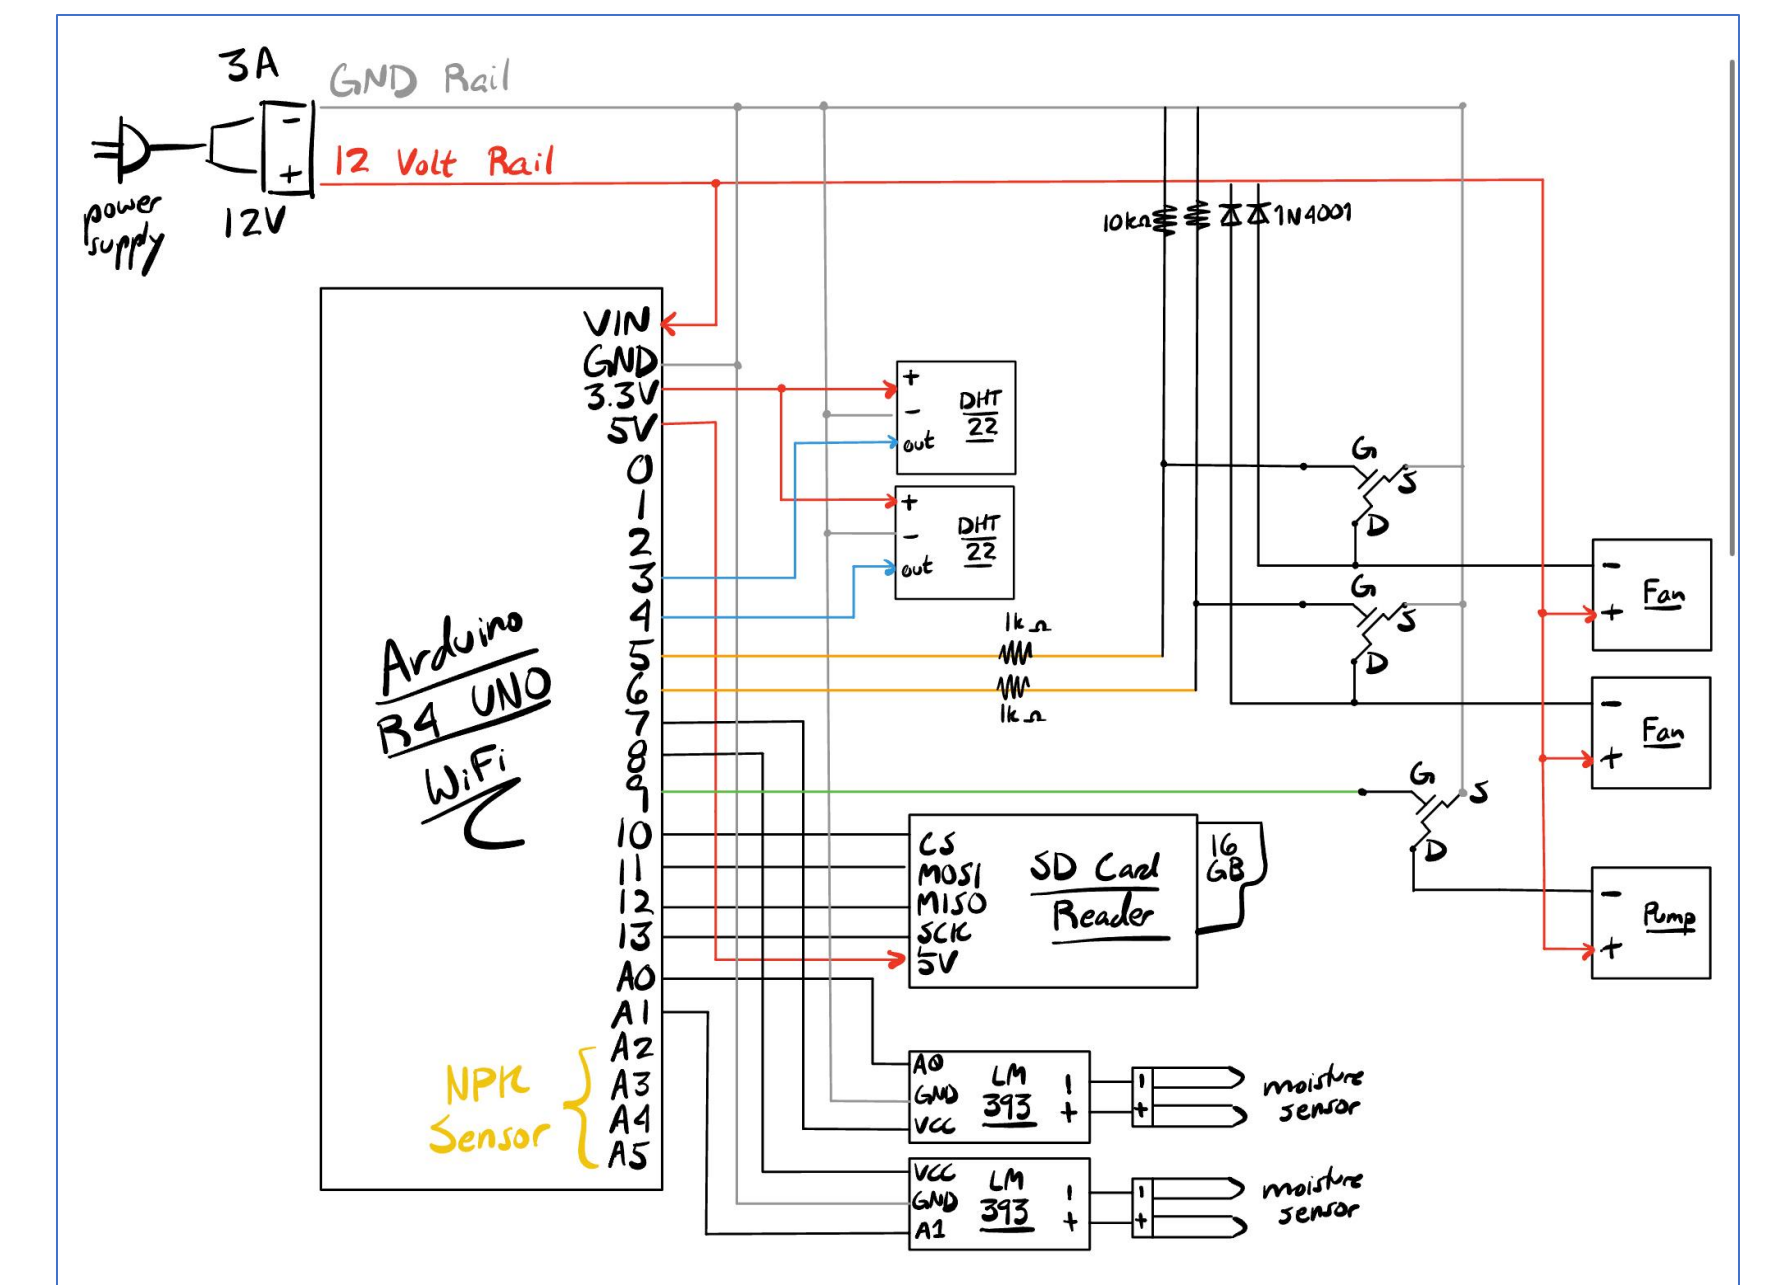 3A
GND Rail
-
+
12 Volt Rail
power
supply
12V
10kΩ
1N4001
VIN
GND
3.3V
5V
0
1
2
3
4
5
6
7
8
9
10
11
12
13
A0
A1
A2
A3
A4
A5
Arduino
R4 UNO
WiFi
NPK
Sensor
+
-
out
DHT
22
+
-
out
DHT
22
1kΩ
1kΩ
G
S
D
G
S
D
G
S
D
-
+
Fan
-
+
Fan
-
+
Pump
CS
MOSI
MISO
SCK
5V
SD Card
Reader
16
GB
A0
GND
VCC
LM
393
-
+
-
+
moisture
sensor
VCC
GND
A1
LM
393
-
+
-
+
moisture
sensor